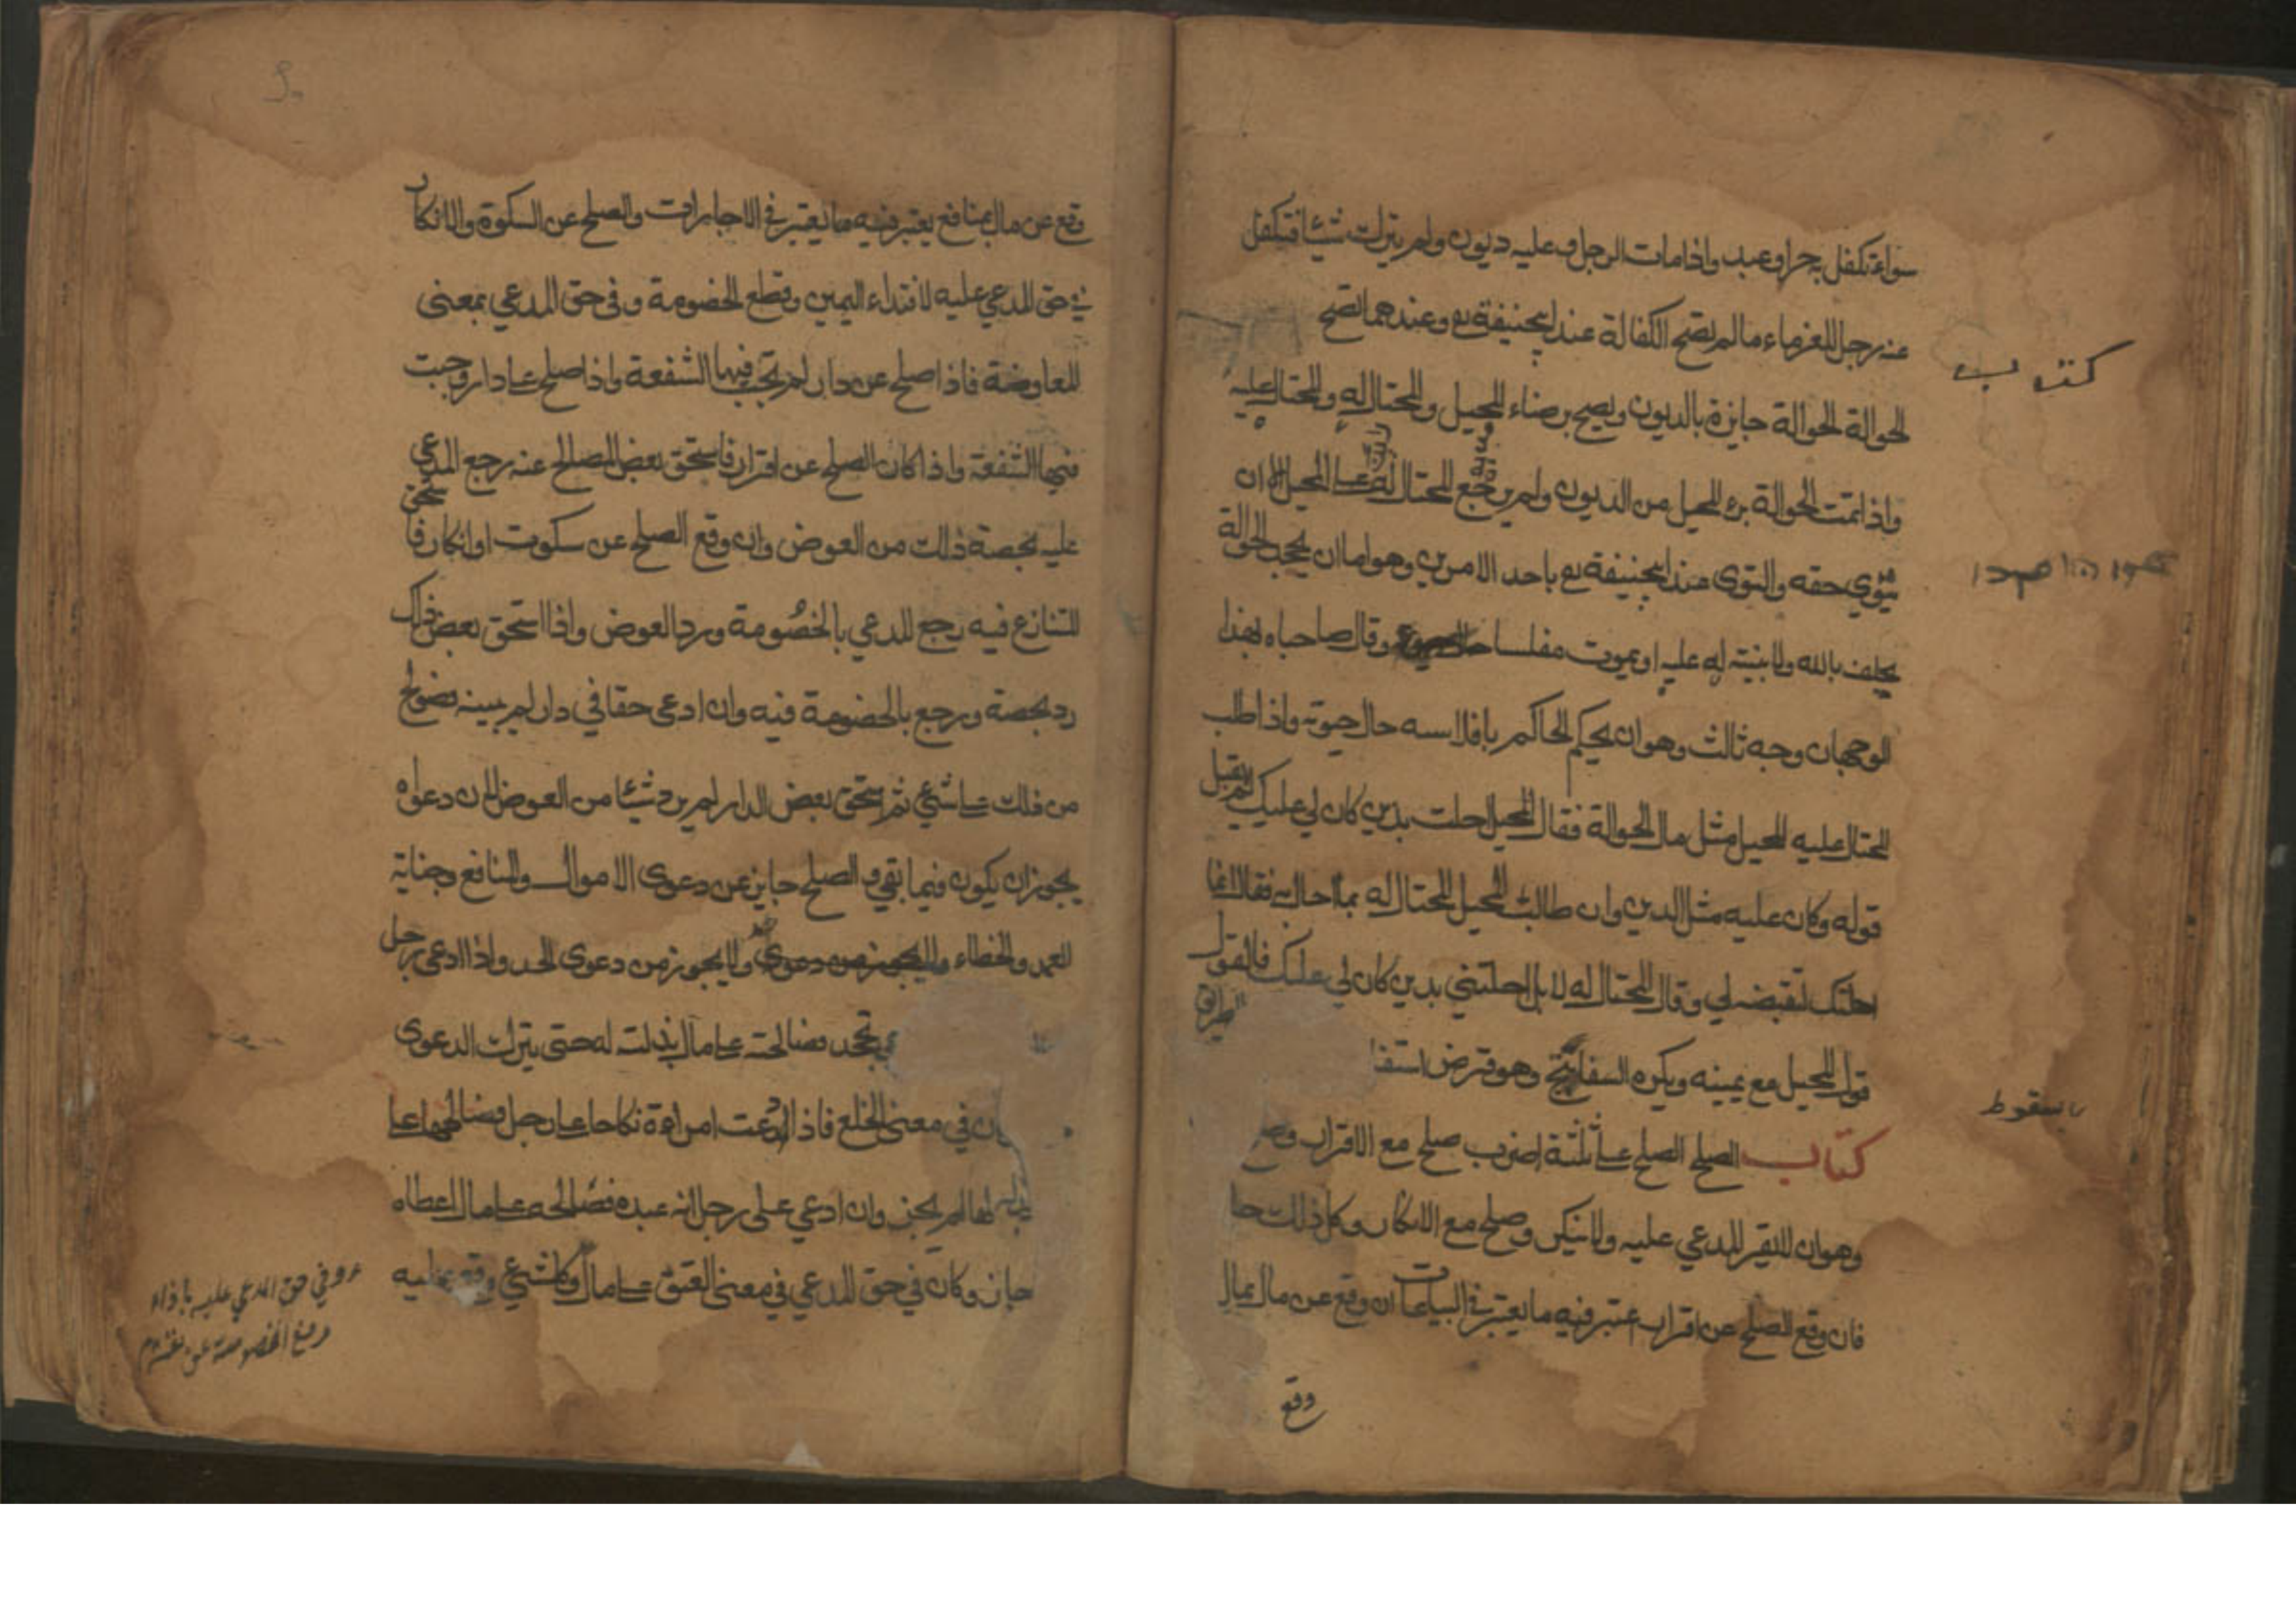 سواء تكفل به حر او عبد واذا مات الرجل وعليه ديون ولم يترك شيئا فتكفل
عنه رجل للغرماء مالم تصح الكفالة عند ابيحنيفة رح وعندهما تصح
كتاب
الحوالة الحوالة جايزة بالديون ويصح برضاء المحيل والمحتال له والمحتال عليه
واذا تمت الحوالة برئ المحيل من الديون ولم يرجع المحتال له على المحيل الا ان
يتوي حقه والتوى عند ابيحنيفة رح باحد الامرين وهو اما ان يجحد الحوالة
يحلف بالله ولا بينة له عليه او يموت مفلسا وقال صاحباه بهذا
الوجهان وجه ثالث وهو ان يحكم الحاكم بافلاسه حال حيوته واذا طلب
المحتال عليه المحيل مثل مال الحوالة فقال المحيل احلت بدين كان لي عليك لم يقبل
قوله وكان عليه مثل الدين وان طالب المحيل المحتال له بما احاله فقال انما
احلتك لتقبضه لي وقال المحتال له لا بل احلتني بدين كان لي عليك فالقول
قول المحيل مع يمينه ويكره السفاتج وهو قرض استفا
الطريق
بسقوط
كتاب الصلح الصلح على ثلثة اضرب صلح مع الاقرار وصلح
وهو ان لا يقر المدعي عليه ولا ينكر وصلح مع الانكار وكل ذلك جا
فان وقع الصلح عن اقرار اعتبر فيه ما يعتبر في البياعات ان وقع عن مال بمال
وقع
وقع عن مال بمنافع يعتبر فيه ما يعتبر في الاجارات والصلح عن السكوة والانكار
في حق المدعي عليه لافتداء اليمين وقطع الخصومة وفي حق المدعي بمعنى
المعاوضة فاذا صلح عن دار لم تجب فيها الشفعة واذا صلح على دار وجبت
فيها الشفعة واذا كان الصلح عن اقرار فاستحق بعض المصالح عنه رجع المدعي
عليه بحصة ذلك من العوض وان وقع الصلح عن سكوت او انكار فاستحق
المتنازع فيه رجع المدعي بالخصومة ورد العوض واذا استحق بعض ذلك
رد بحصة ورجع بالخصومة فيه وان ادعى حقا في دار لم يبينه فصولح
من ذلك على شئ ثم استحق بعض الدار لم يرد شيئا من العوض لان دعواه
يجوز ان يكون فيما بقي و الصلح جايز عن دعوى الاموال والمنافع وجناية
العمد والخطاء ولا يجوز من دعوى الحد واذا ادعى رجل
تجحد فصالحته على مال بذلته له حتى يترك الدعوى
ان في معنى الخلع فاذا ادعت امراءة نكاحا على رجل فصالحها على
بذله لها لم يجز وان ادعي على رجل انه عبده فصالحه على مال اعطاه
جاز وكان في حق المدعي في معنى العتق على مال وكل شئ وقع عليه
وفي حق المدعي عليه باداء
دفع الخصومة عن نفسه